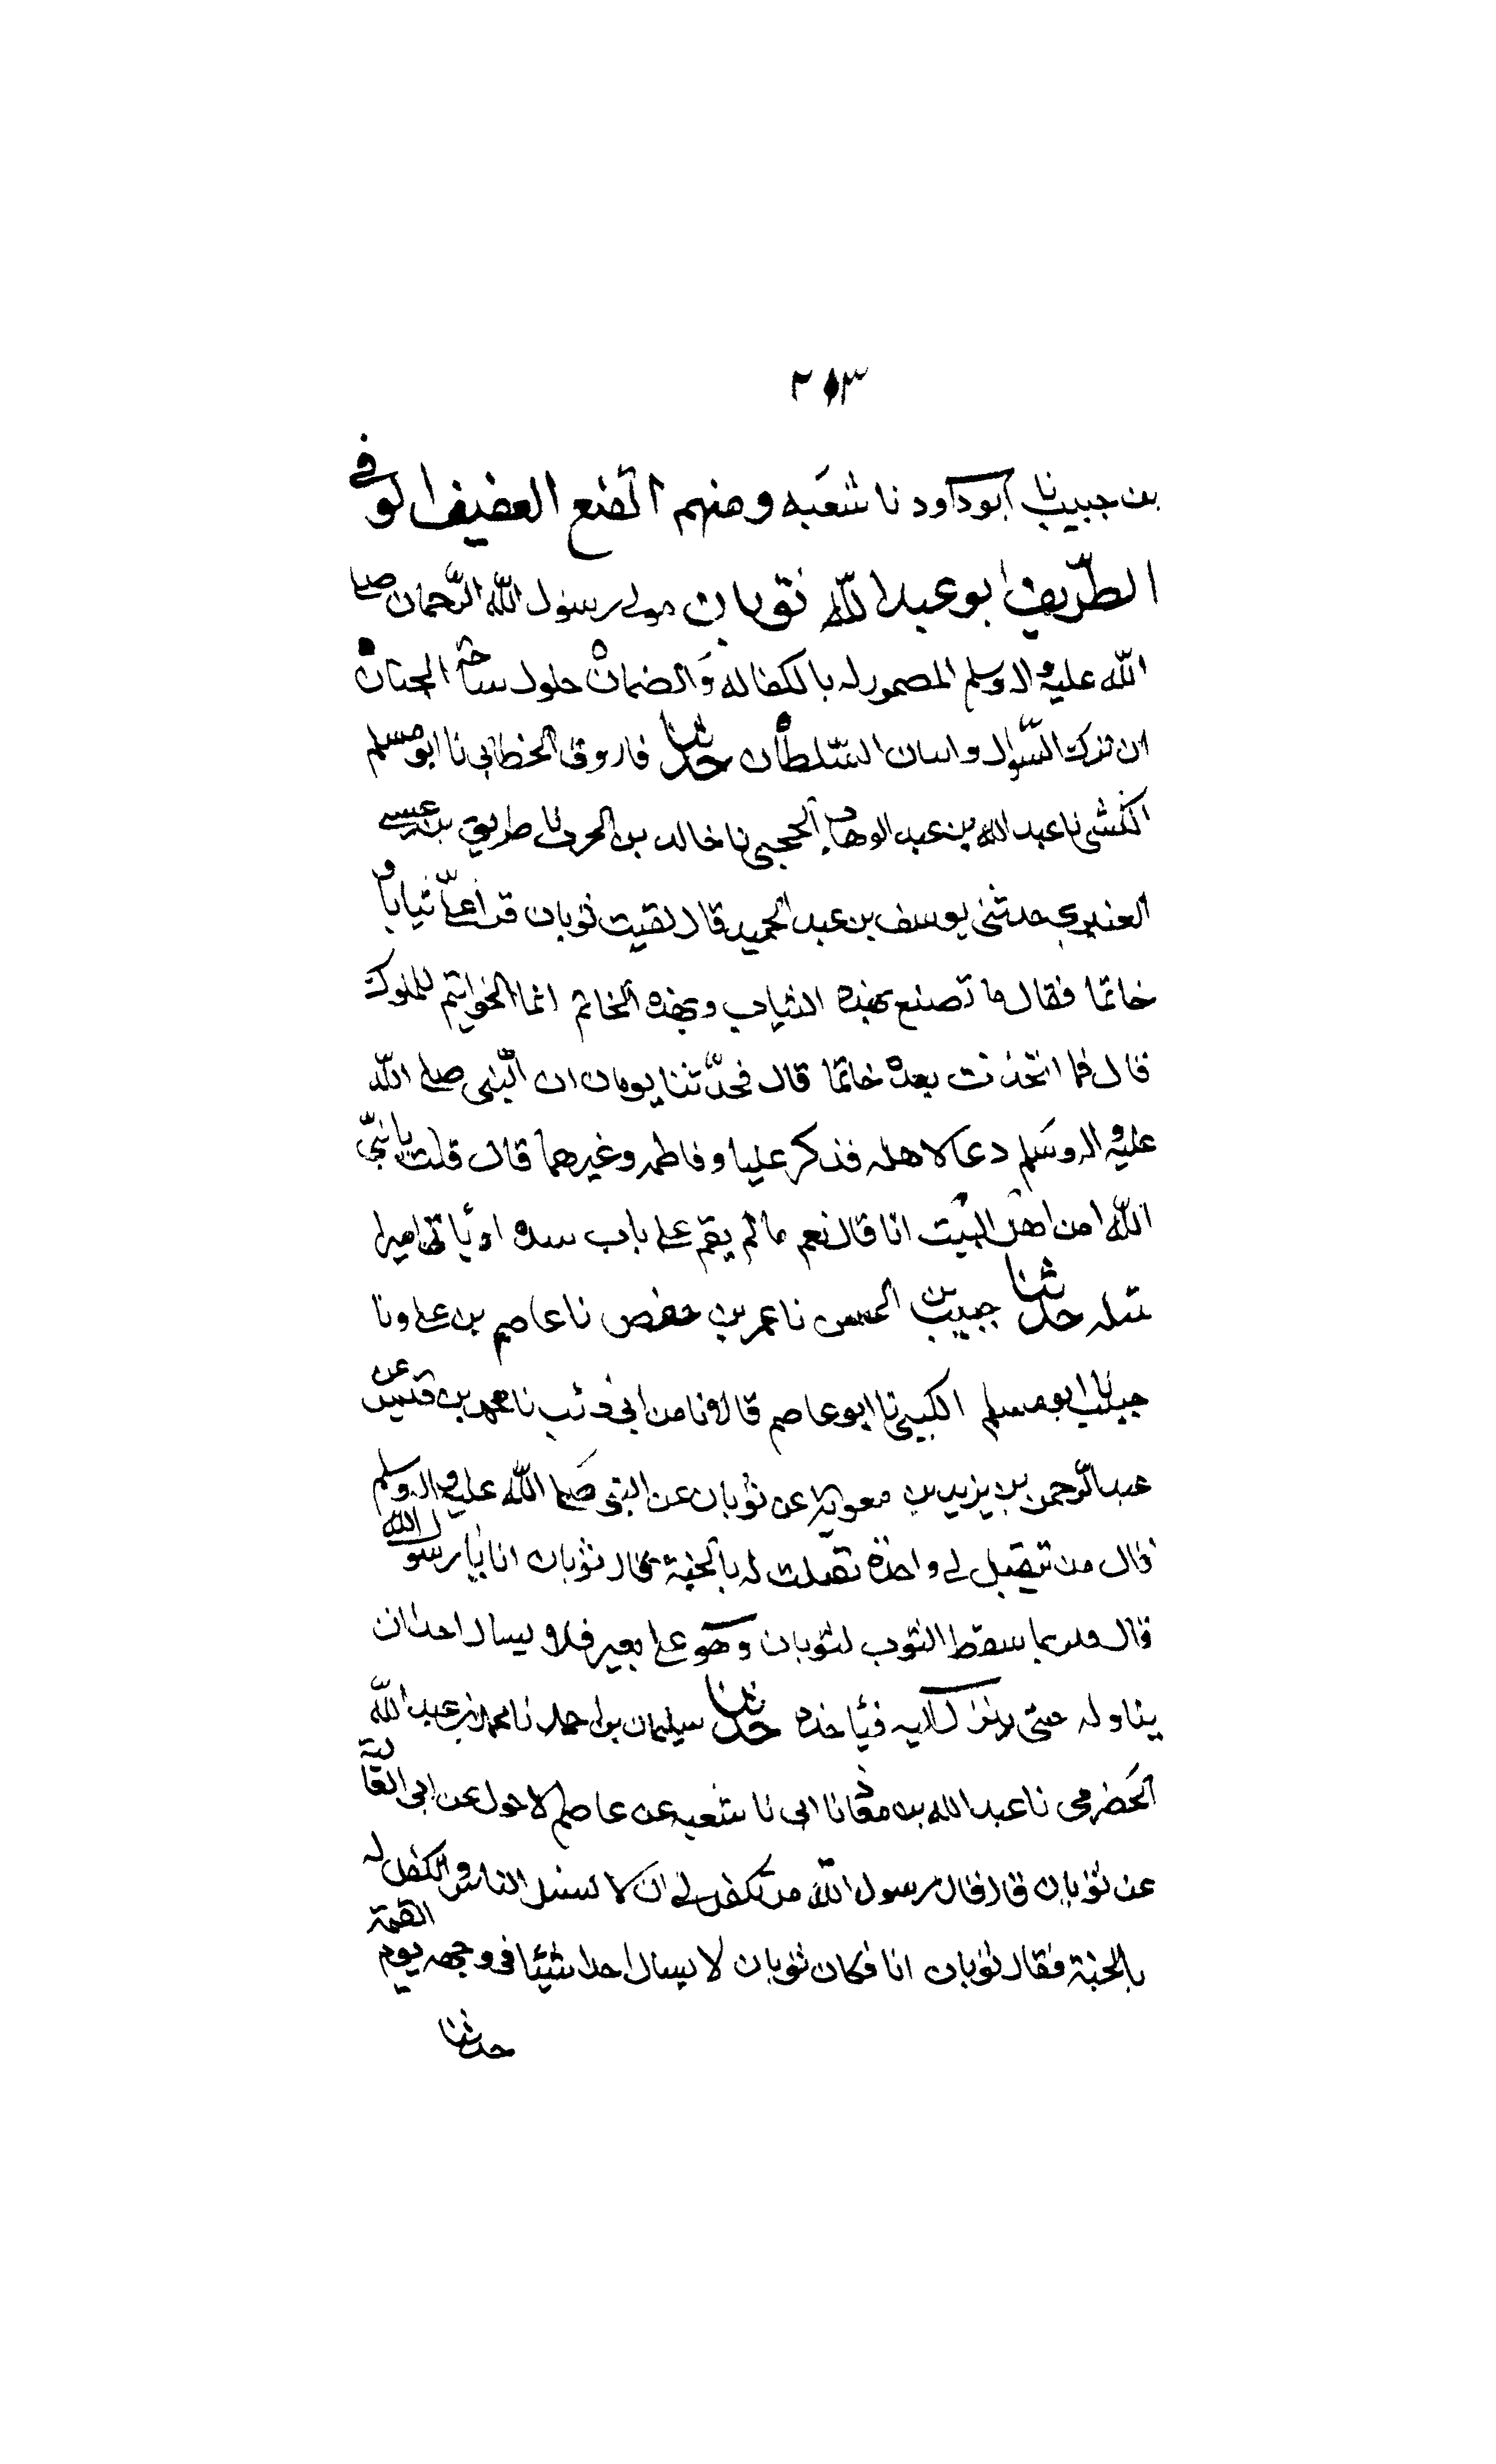 ٢٥٣
بن حبيب نا ابو داود نا شعبه ومنهم القنع العفيف الوفي
الظريف ابو عبد الله ثوبان مولى رسول الله الرحمان صلى
الله عليه واله وسلم المضمون له بالكفاله والضمان حلول ساحة الجنان
ان ترك السوال واتيان السلطان حدثنا فاروق الخطابي نا ابو مسلم
الكشي نا عبد الله بن عبد الوهاب الحجبي نا خالد بن الحرث نا طريق بن عيسى
العنبري حدثني يوسف بن عبد الحميد قال لقيت ثوبان فراى علي ثيابا و
خاتما فقال ما تصنع بهذه الثياب وبهذه الخاتم انما الخواتيم للملوك
قال فما اتخذت بعده خاتما قال فحدثنا يوبان ان النبي صلى الله
عليه واله وسلم دعا لاهله فذكر عليا وفاطمه وغيرهما قال قلت يا نبي
الله امن اهل البيت انا قال نعم ما لم يقم على باب سده او ياتي اميرا
تسله حدثنا حبيب بن الحسن نا عمر بن حفص نا عاصم بن على ونا
حبيب نا ابو مسلم الكبشي نا ابو عاصم قالا نا من ابي ذئب نا محمد بن قيس عن
عبد الرحمن بن يزيد بن معويه عن ثوبان عن النبي صلى الله عليه واله وسلم
قال من تيقبل لي واحدة تقبلت له بالجنة فقال ثوبان انا يا رسول الله
قال فلربما سقط الثوب لثوبان وهو على بعير فلا يسال احدا ان
يناوله حتى ينزل اليه فياخذه حدثنا سليمان بن احمد نا محمد بن عبد الله
الحضرمي نا عبد الله بن معاذ نا ابي نا شعبه عن عاصم لاحول عن ابي العالية
عن ثوبان قال قال رسول الله من تكفل لي ان لا تسئل الناس واتكفل له
بالجنة فقال ثوبان انا فكان ثوبان لا يسال احدا شيئا في وجهه يوم القيمة
حدثنا